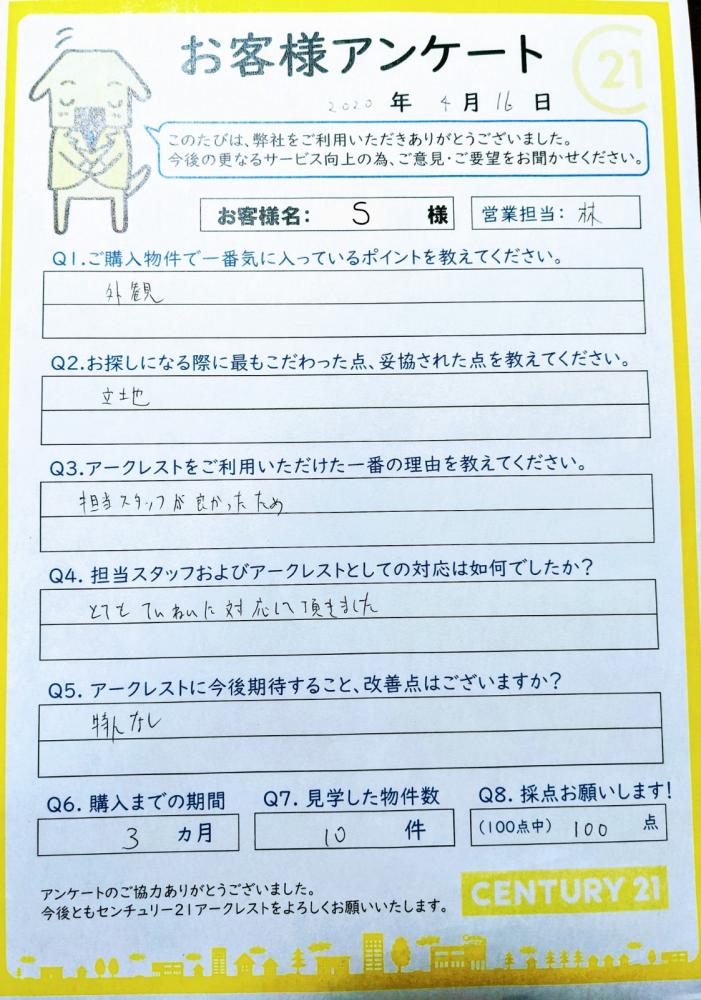 お客様アンケート
21
2020 年 4 月 16 日
このたびは、弊社をご利用いただきありがとうございました。
今後の更なるサービス向上の為、ご意見・ご要望をお聞かせください。
お客様名: S 様
営業担当: 林
Q1.ご購入物件で一番気に入っているポイントを教えてください。
外観
Q2.お探しになる際に最もこだわった点、妥協された点を教えてください。
立地
Q3.アークレストをご利用いただけた一番の理由を教えてください。
担当スタッフが良かったため
Q4. 担当スタッフおよびアークレストとしての対応は如何でしたか?
とてもていねいに対応して頂きました
Q5. アークレストに今後期待すること、改善点はございますか?
特になし
Q6. 購入までの期間
3 カ月
Q7. 見学した物件数
10 件
Q8. 採点お願いします!
(100点中) 100 点
アンケートのご協力ありがとうございました。
今後ともセンチュリー21アークレストをよろしくお願いいたします。
CENTURY 21